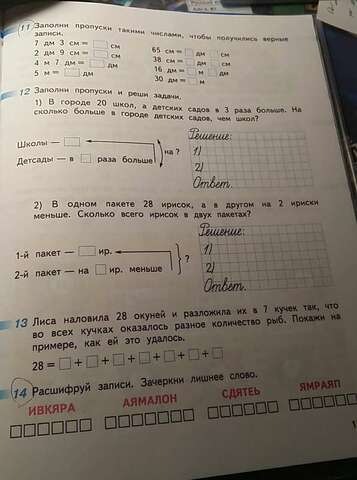 11 Заполни пропуски такими числами, чтобы получились верные
записи.
7 дм 3 см = □ см
2 дм 9 см = □ см
4 м 7 дм = □ дм
5 м = □ дм
65 см = □ дм □ см
38 см = □ дм □ см
16 дм = □ м □ дм
30 дм = □ м
12 Заполни пропуски и реши задачи.
1) В городе 20 школ, а детских садов в 3 раза больше. На
сколько больше в городе детских садов, чем школ?
Школы — □
Детсады — в □ раза больше
на ?
Решение:
1)
2)
Ответ.
2) В одном пакете 28 ирисок, а в другом на 2 ириски
меньше. Сколько всего ирисок в двух пакетах?
1-й пакет — □ ир.
2-й пакет — на □ ир. меньше
?
Решение:
1)
2)
Ответ.
13 Лиса наловила 28 окуней и разложила их в 7 кучек так, что
во всех кучках оказалось разное количество рыб. Покажи на
примере, как ей это удалось.
28 = □ + □ + □ + □ + □ + □ + □
14 Расшифруй записи. Зачеркни лишнее слово.
ИВКЯРА АЯМАЛОН СДЯТЕЬ ЯМРАЯП